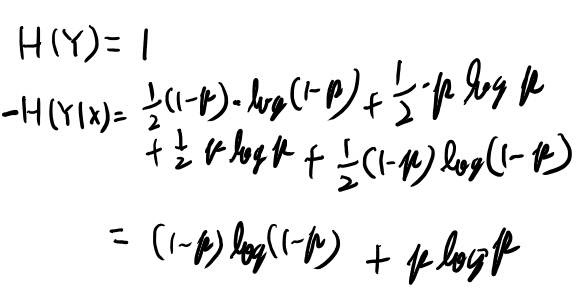 H(Y) = 1
-H(Y|X) = 1/2(1-p)·log(1-p) + 1/2·p log p
+ 1/2 p log p + 1/2(1-p) log(1-p)
= (1-p) log(1-p) + p log p